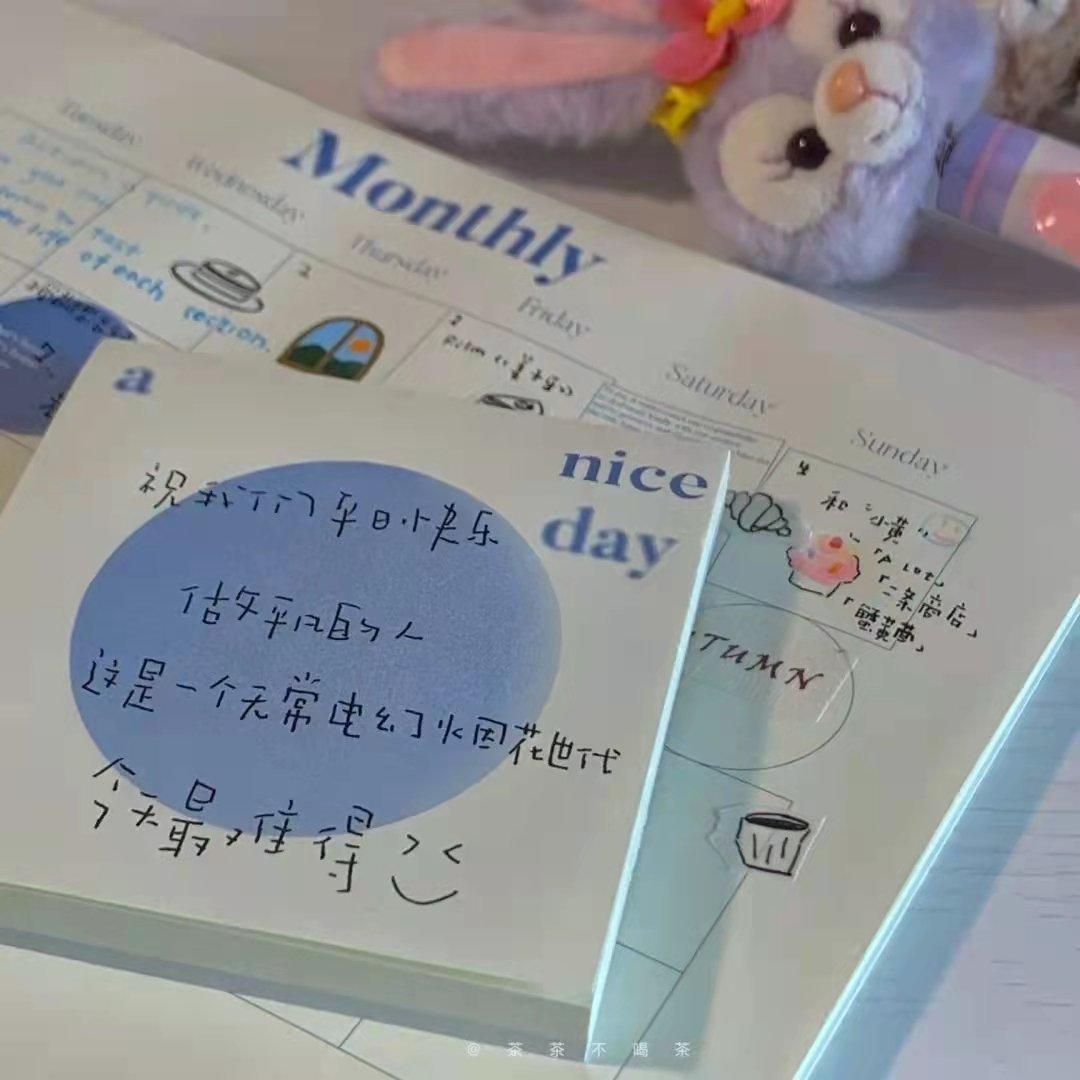 Monthly
Tuesday
Wednesday
Thursday
Friday
Saturday
Sunday
of each section.
2
4
和“小黄”
「二条商店」
「蟹黄
TUMN
a
nice
day
祝我们平日快乐
做平凡的人
这是一个无常电幻烟花世代
今天最难得
@一茶茶不喝茶